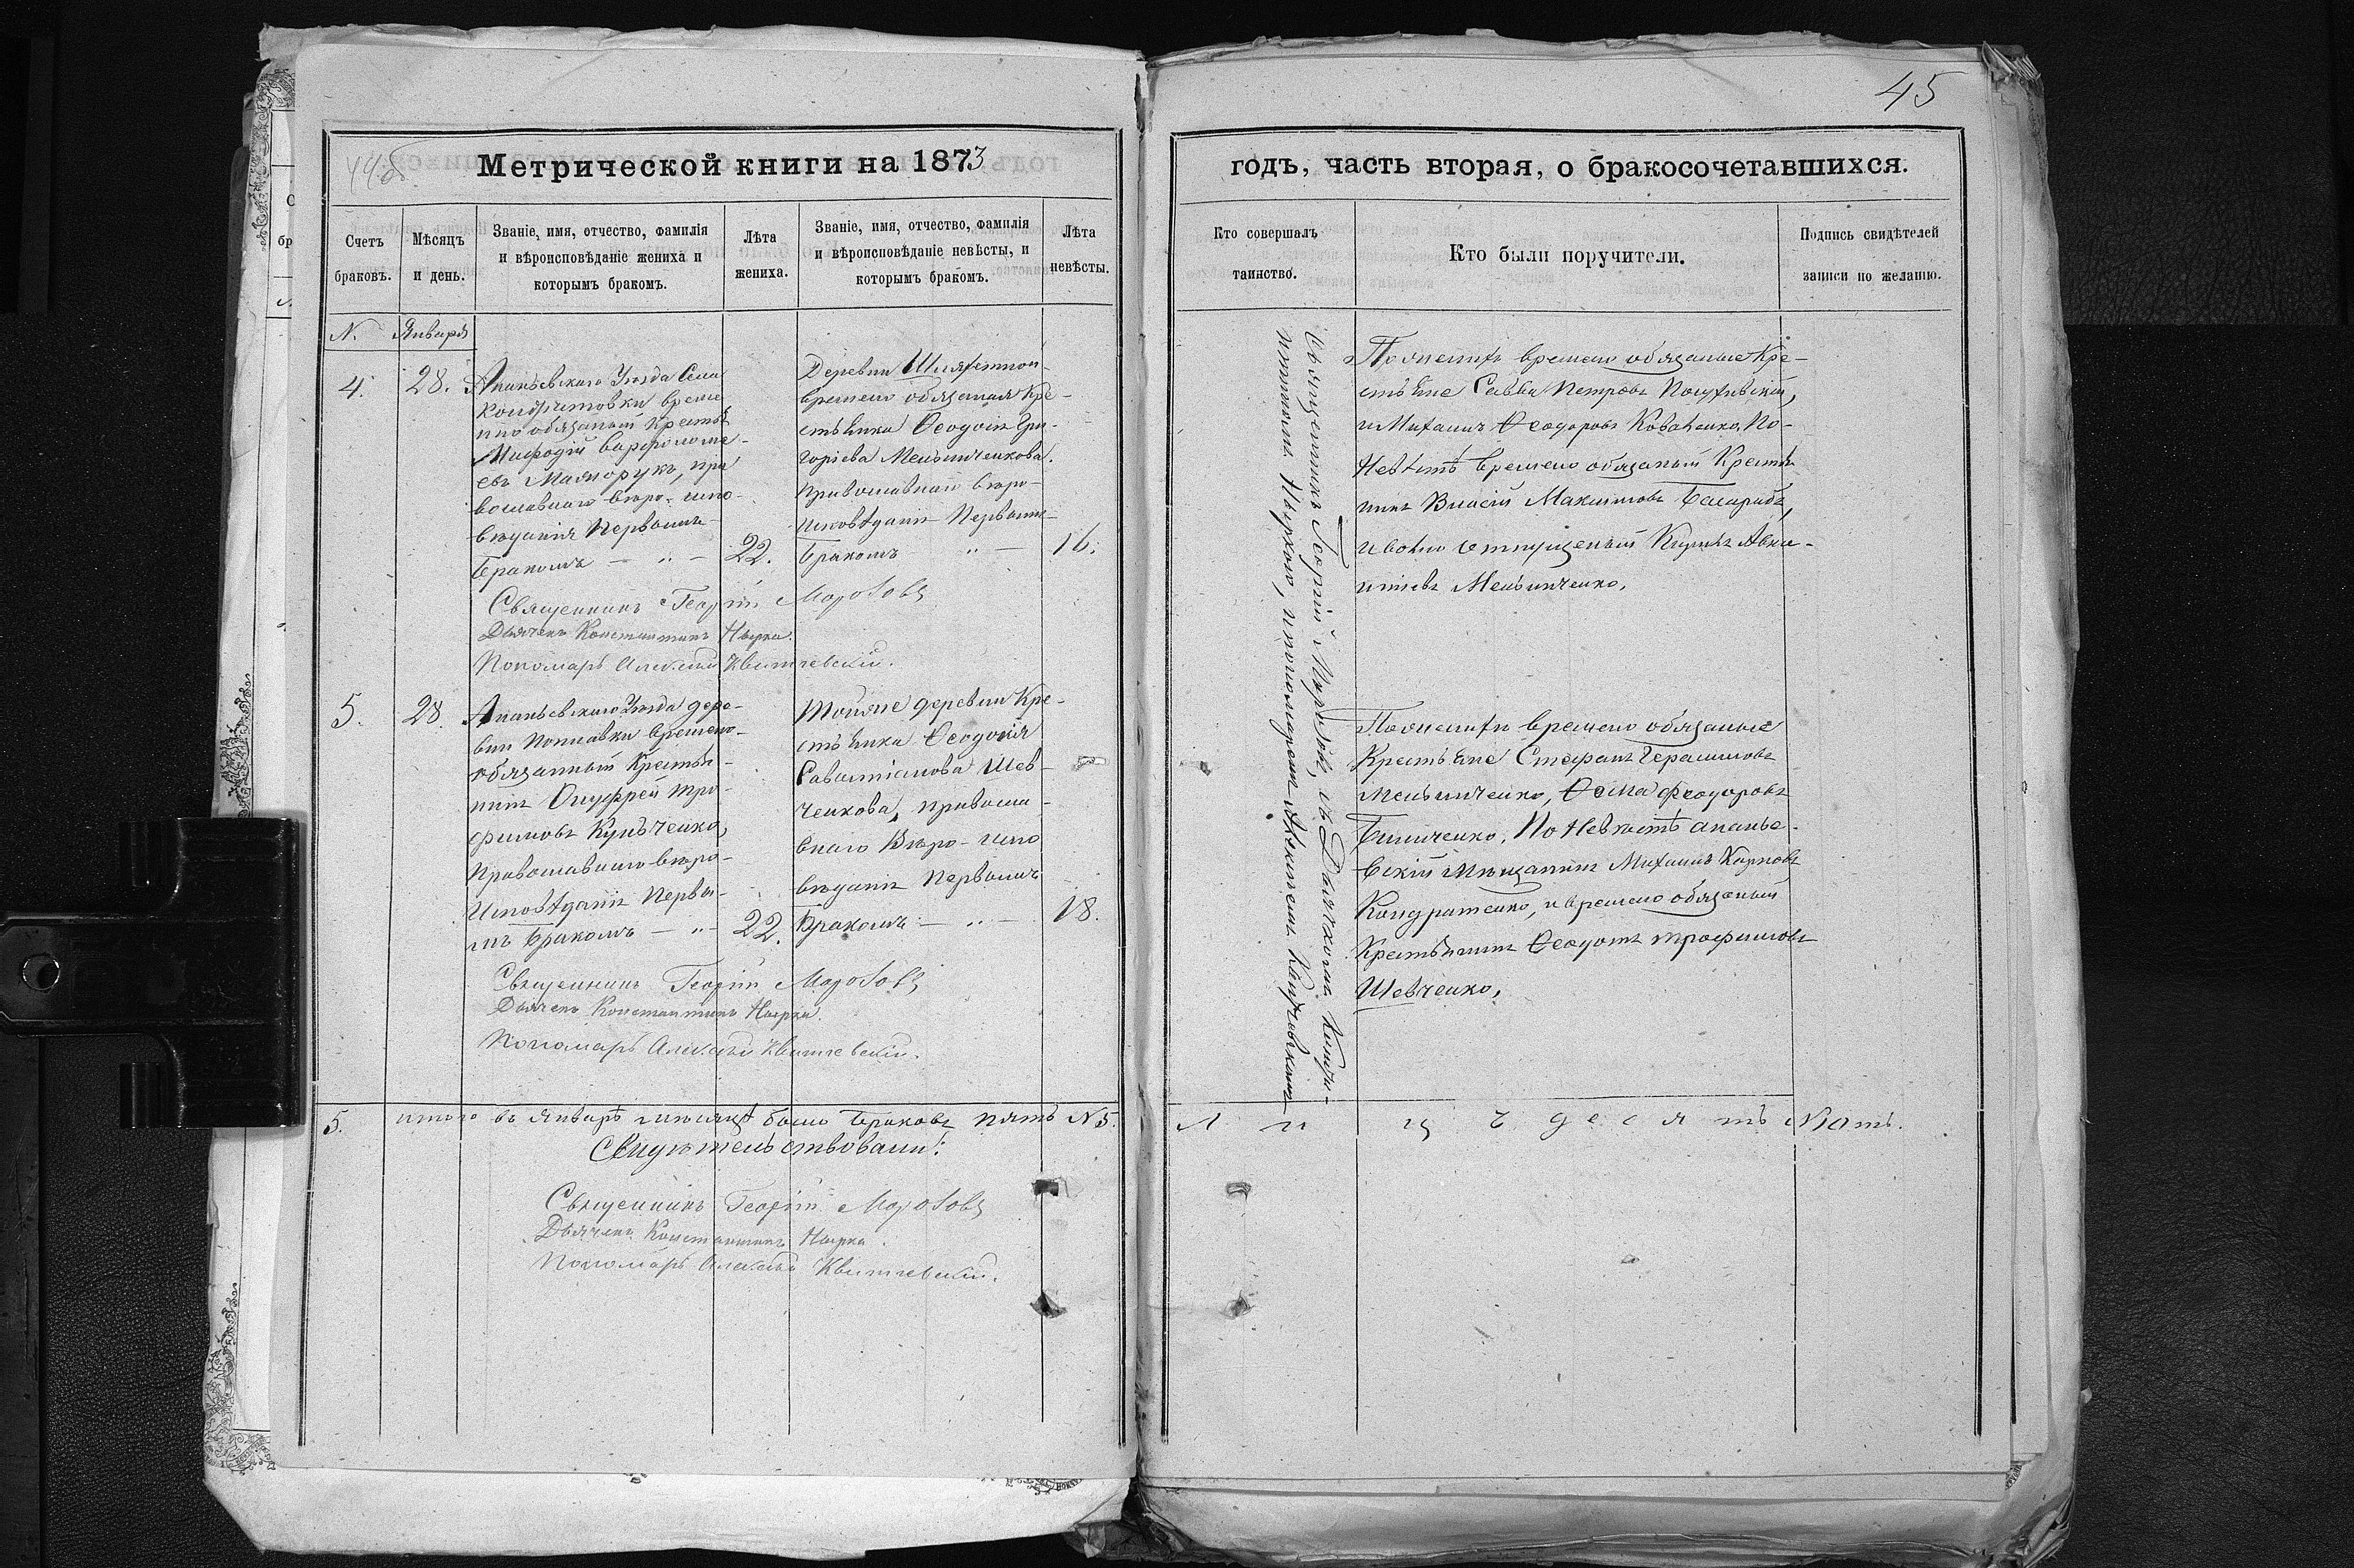 44об.
Метрической книги на 1873
Счетъ браковъ.
Мѣсяцъ и день.
Званіе, имя, отчество, фамилія
и вѣроисповѣданіе жениха и
которымъ бракомъ.
Лѣта жениха.
Званіе, имя, отчество, фамилія
и вѣроисповѣданіе невѣсты, и
которымъ бракомъ.
Лѣта невѣсты.
N. Января
4. 28.
Ананьевскаго Уѣзда Села
време
нно обязаный Крестья
Мифодій Варфоломе-
евъ Маяморукъ, пра
вославнаго вѣро-испо-
вѣданія Первымъ
Бракомъ — „ — 22.
Деревни
времено обязаная Кре-
стьянка Ѳеодосія Гри-
горіева Мельниченкова.
Православнаго вѣро-
исповѣданія Первымъ
Бракомъ „ — 16.
Священникъ Георгій Морозовъ
Дьячекъ Константинъ Нырка.
Пономарь Алексѣй Квитчевскій.
5. 28.
Ананьевскаго Уѣзда дере-
вни времено-
обязанный Крестья-
нинъ Онуфрей Тро-
фимовъ Кульченко,
Православнаго вѣро-
Исповѣданія Первы-
мъ Бракомъ — „ — 22.
Тойже деревни Кре-
стьянка Ѳеодосія
Савастіанова Шев-
ченкова, православ-
внаго Вѣро-испо
вѣданія Первымъ
Бракомъ — „ — 18.
Священникъ Георгій Морозовъ
Дьячекъ Константинъ Нырка.
Пономарь Алексѣй Квитчевскій.
5. итого въ Январѣ мѣсяцѣ было Браковъ пять N 5.
Свидѣтельствовали:
Священникъ Георгій Морозовъ
Дьячекъ Константинъ Нырка.
Пономарь Алексѣй Квитчевскій.
45
годъ, часть вторая, о бракосочетавшихся.
Кто совершалъ
таинство.
Кто были поручители.
Подпись свидѣтелей
записи по желанію.
Священникъ Георгій Морозовъ, съ Дьячкомъ Конста-
нтиномъ Ныркою, и пономаремъ Алексѣемъ Квитчевскимъ
По женихѣ времено обязаные Кре-
стьяне Савва Петровъ
и Михаилъ Ѳеодоровъ Коваленко, По-
Невѣстѣ времено обязаный Крестья
нинъ Власій Максимовъ
и вольно отпущеный
Мельниченко.
По женихѣ времено обязаные
Крестьяне Стефанъ Герасимовъ
Мельниченко, Ѳома Феодоровъ
По Невѣстѣ Ананье-
вскій мѣщанинъ Михаилъ Карповъ
Кондратенко, и времено обязаный
Крестьянинъ Ѳеодотъ Трофимовъ
Шевченко.
Л и ц ъ д е с я т ь N 10ть.